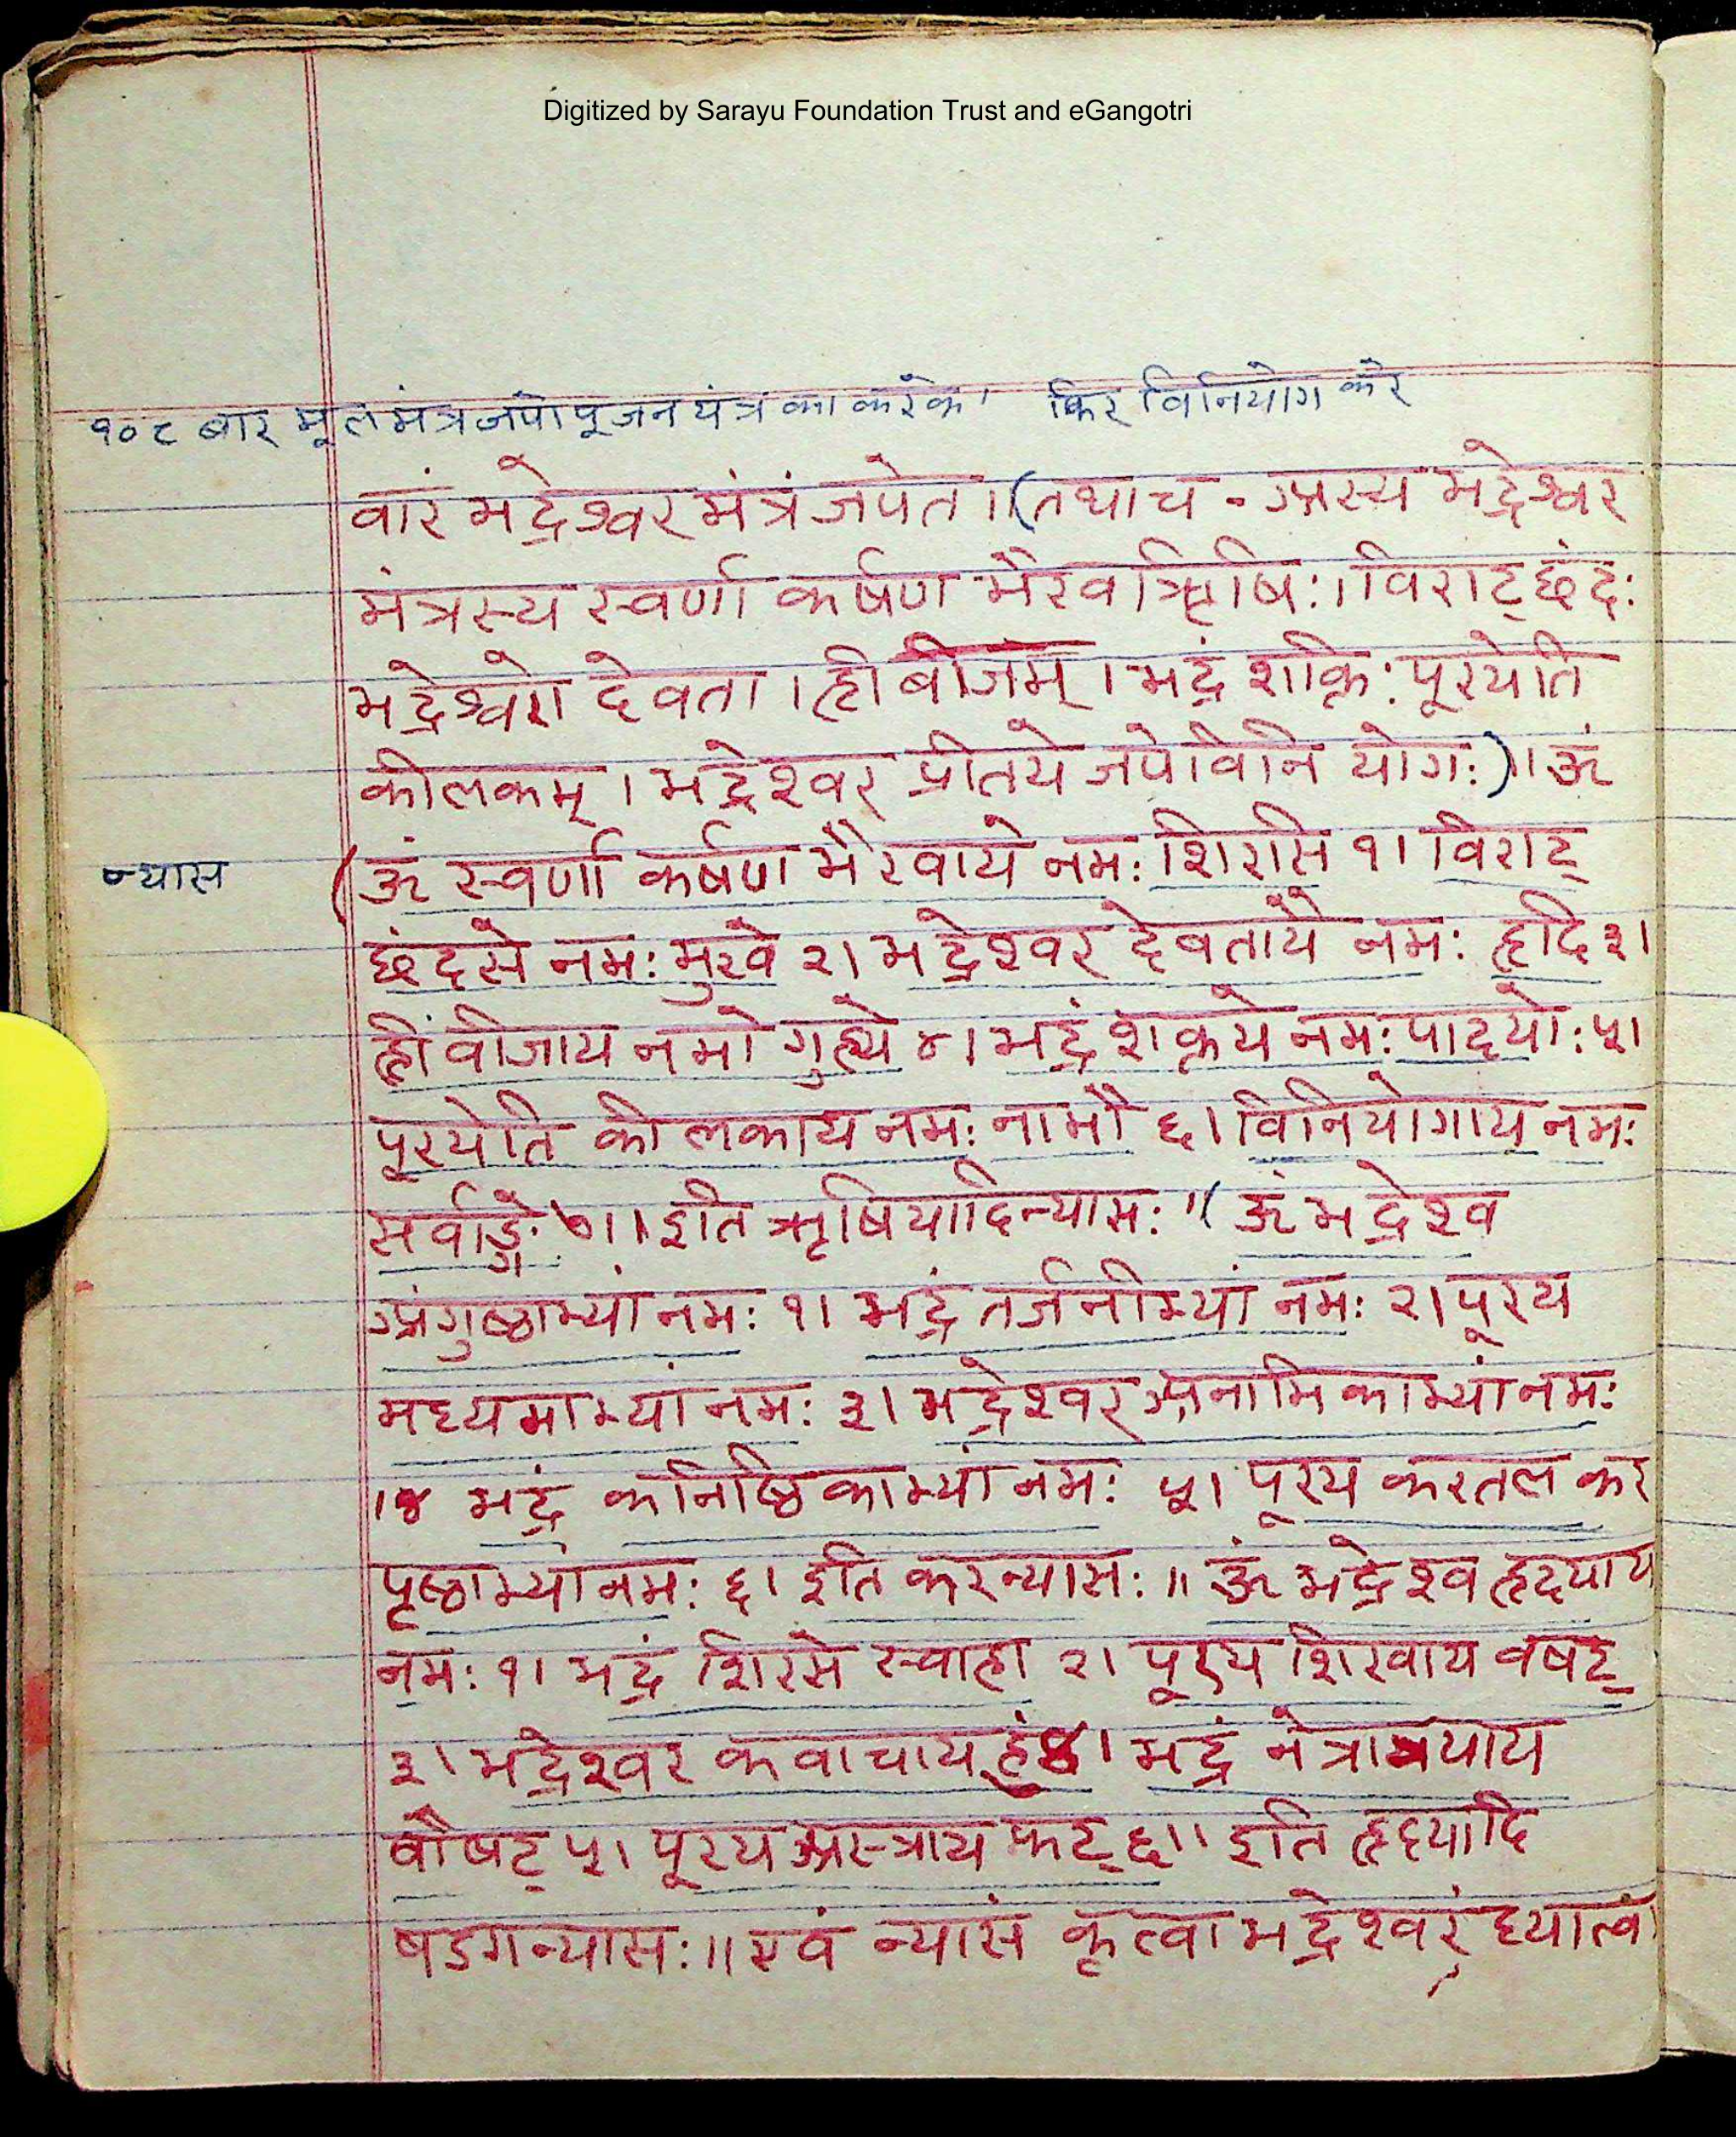 Digitized by Sarayu Foundation Trust and eGangotri
१०८ बार मूल मंत्र जपो पूजन यंत्र का करके। फिर विनियोग करे
वारं भद्रेश्वर मंत्रं जपेत ।। (तथा च - अस्य भद्रेश्वर
मंत्रस्य स्वर्णा कर्षण भैरव ऋषिः। विराट् छंदः
भद्रेश्वरो देवता । ह्रीं बीजम् । भद्रं शक्तिः पूरयेति
कीलकम् । भद्रेश्वर प्रीतये जपे विनि योगः)।। ॐ
न्यास
(ॐ स्वर्णा कर्षण भैरवाये नमः शिरसि १। विराट्
छंदसे नमः मुखे २। भद्रेश्वर देवतायै नमः हृदि ३।
ह्रीं वीजाय नमो गुह्ये ४। भद्रं शक्तये नमः पादयोः ५।
पूरयेति कीलकाय नमः नाभौ ६। विनियोगाय नमः
सर्वाङ्गे ७।। इति ऋषियादिन्यासः ।। (ॐ भद्रेश्व
अंगुष्ठाभ्यां नमः १। भद्रं तर्जनीभ्यां नमः २। पूरय
मध्यमाभ्यां नमः ३। भद्रेश्वर अनामिकाभ्यां नमः
।४ भद्रं कनिष्ठिकाभ्यां नमः ५। पूरय करतल कर
पृष्ठाभ्यां नमः ६। इति करन्यासः ।। ॐ भद्रेश्व हृदयाय
नमः १। भद्रं शिरसे स्वाहा २। पूरय शिखाय वषट्
३। भद्रेश्वर कवाचाय हुं ४। भद्रं नेत्रात्रयाय
वौषट् ५। पूरय अस्त्राय फट् ६।। इति हृदयादि
षडगन्यासः ।। एवं न्यासं कृत्वा भद्रेश्वरं ध्यात्वा